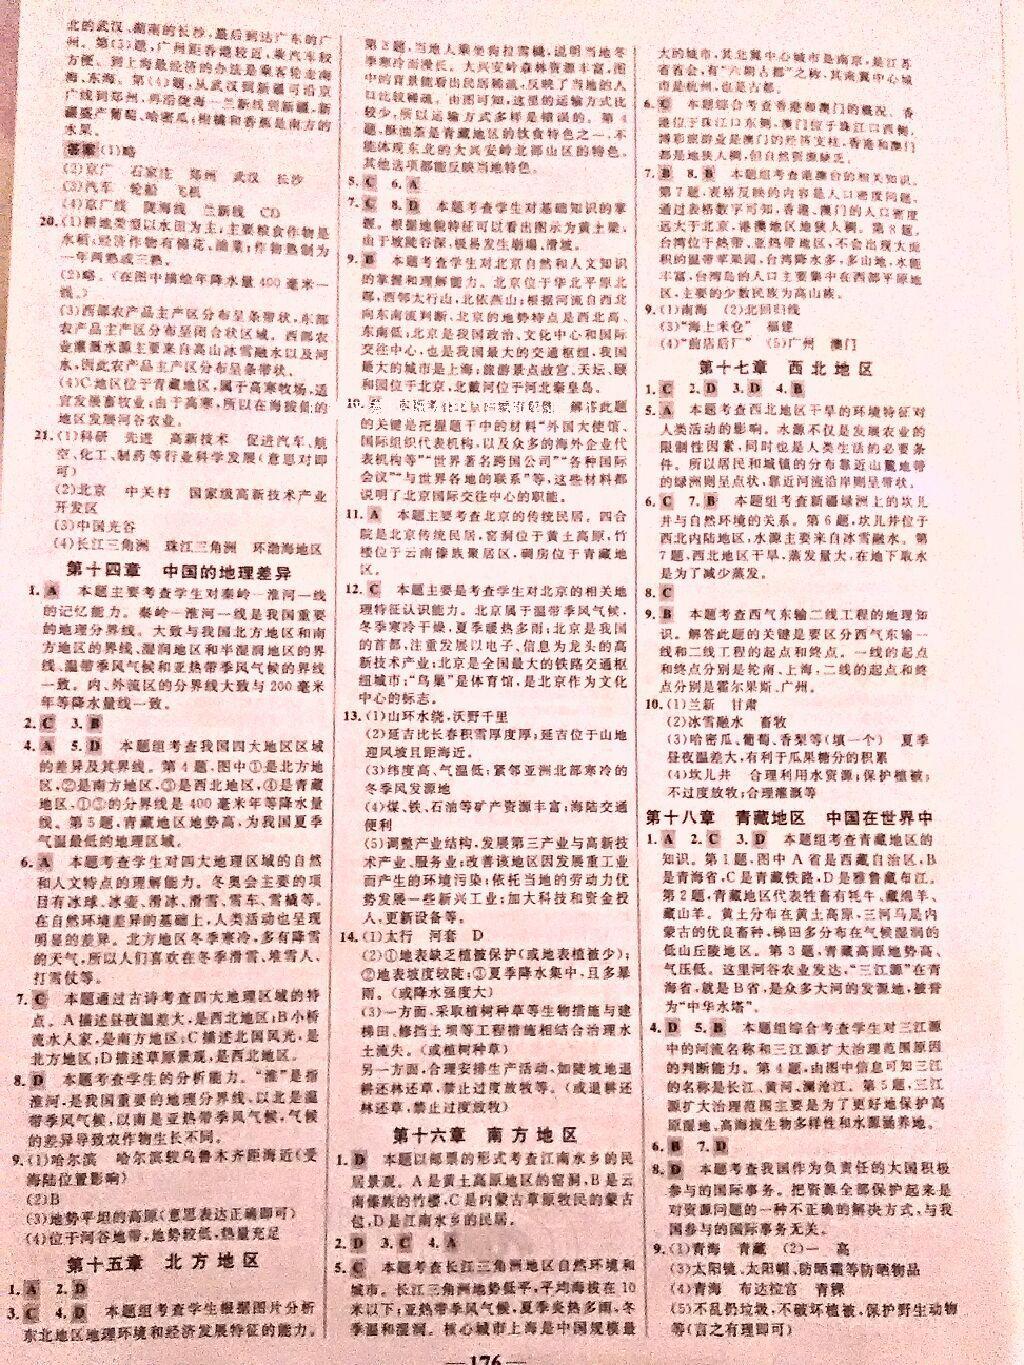 北的武汉、湖南的长沙,最后到达广东的广
州。第(3)题,广州距香港较近,乘汽车较
方便。到上海最经济的办法是乘客轮走南
海、东海。第(4)题,从武汉到新疆可沿京
广线到郑州,再沿陇海—兰新线到新疆,新
疆盛产葡萄、哈密瓜;柑橘和香蕉是南方的
水果。
答案(1)略
(2)京广 石家庄 郑州 武汉 长沙
(3)汽车 轮船 飞机
(4)京广线 陇海线 兰新线 CD
20.(1)耕地类型以水田为主;主要粮食作物是
水稻;经济作物有棉花、油菜;作物熟制为
一年两熟或三熟。
(2)略。(在图中描绘年降水量400毫米一
线。)
(3)西部农产品主产区分布呈条带状,东部
农产品主产区分布呈闭合状区域。西部农
业灌溉水源主要来自高山冰雪融水以及河
水,因此农产品主产区分布呈条带状。
(4)C地区位于青藏地区,属于高寒牧场,适
宜发展畜牧业;由于高寒,所以在海拔低的
地区发展河谷农业。
21.(1)科研 先进 高新技术 促进汽车、航
空、化工、制药等行业科学发展(意思对即
可)
(2)北京 中关村 国家级高新技术产业
开发区
(3)中国光谷
(4)长江三角洲 珠江三角洲 环渤海地区
第十四章 中国的地理差异
1.A 本题主要考查学生对秦岭—淮河一线
的记忆能力。秦岭—淮河一线是我国重要
的地理分界线。大致与我国北方地区和南
方地区的界线、湿润地区和半湿润地区的界
线、温带季风气候和亚热带季风气候的界线
一致。内、外流区的分界线大致与200毫米
年等降水量线一致。
2.C 3.B
4.A 5.D 本题组考查我国四大地区区域
的差异及其界线。第4题,图中①是北方地
区,②是南方地区,③是西北地区,④是青藏
地区,①③的分界线是400毫米年等降水量
线。第5题,青藏地区地势高,为我国夏季
气温最低的地理区域。
6.A 本题考查学生对四大地理区域的自然
和人文特点的理解能力。冬奥会主要的项
目有冰球、冰壶、滑冰、滑雪、雪车、雪橇等。
在自然环境差异的基础上,人类活动也呈现
明显的差异。北方地区冬季寒冷,多有降雪
的天气,所以人们喜欢在冬季滑雪、堆雪人、
打雪仗等。
7.C 本题通过古诗考查四大地理区域的特
点。A描述昼夜温差大,是西北地区;B小桥
流水人家,是南方地区;C描述北国风光,是
北方地区;D描述草原景观,是西北地区。
8.D 本题考查学生的分析能力。“淮”是指
淮河,是我国重要的地理分界线,以北是温
带季风气候,以南是亚热带季风气候,气候
的差异导致农作物生长不同。
9.(1)哈尔滨 哈尔滨较乌鲁木齐距海近(受
海陆位置影响)
(2)B
(3)地势平坦的高原(意思表达正确即可)
(4)位于河谷地带,地势较低,热量充足
第十五章 北方地区
1.A 2.D
3.C 4.D 本题组考查学生根据图片分析
东北地区地理环境和经济发展特征的能力。
第2题,当地人乘坐狗拉雪橇,说明当地冬
季寒冷而漫长。大兴安岭森林资源丰富,图
中的背景能看出民居稀疏,反映了当地的人
口比较稀疏。由图可知,这里的运输方式比
较少,所以运输方式多样是错误的。第4
题,酥油茶是青藏地区的饮食特色之一,不
能体现东北的大兴安岭北部山区的特色。
其他选项都能反映当地特色。
5.C 6.A
7.C 8.D 本题考查学生对基础知识的掌
握。根据地貌特征可以看出图示为黄土梁,
由于坡陡谷深,极易发生崩塌、滑坡。
9.B 本题考查学生对北京自然和人文知识
的掌握和理解能力。北京位于华北平原北
部,西邻太行山,北依燕山;根据河流自西北
向东南流判断,北京的地势特点是西北高、
东南低;北京是我国政治、文化中心和国际
交往中心,也是我国最大的交通枢纽,我国
最大的城市是上海;旅游景点故宫、天坛、颐
和园位于北京,北戴河位于河北秦皇岛。
解答此题
的关键是把握题干中的材料“外国大使馆、
国际组织代表机构,以及众多的海外企业代
表机构等”“世界著名跨国公司”“各种国际
会议”“与世界各地的联系”等,这些材料都
说明了北京国际交往中心的职能。
11.A 本题主要考查北京的传统民居。四合
院是北京传统民居,窑洞位于黄土高原,竹
楼位于云南傣族聚居区,碉房位于青藏地
区。
12.C 本题主要是考查学生对北京的相关地
理特征认识能力。北京属于温带季风气候,
冬季寒冷干燥,夏季暖热多雨;北京是我国
的首都,注重发展以电子、信息为龙头的高
新技术产业;北京是全国最大的铁路交通枢
纽城市;“鸟巢”是体育馆,是北京作为文化
中心的标志。
13.(1)山环水绕,沃野千里
(2)延吉比长春积雪厚度厚;延吉位于山地
迎风坡且距海近。
(3)纬度高、气温低;紧邻亚洲北部寒冷的
冬季风发源地
(4)煤、铁、石油等矿产资源丰富;海陆交通
便利
(5)调整产业结构,发展第三产业与高新技
术产业、服务业;改善该地区因发展重工业
而产生的环境污染;依托当地的劳动力优
势发展一些新兴工业;加大科技和资金投
入,更新设备等。
14.(1)太行 河套 D
(2)①地表缺乏植被保护(或地表植被少);
②地表坡度较陡;③夏季降水集中,且多暴
雨。(或降水强度大)
(3)一方面,采取植树种草等生物措施与建
梯田、修挡土坝等工程措施相结合治理水
土流失。(或植树种草)
另一方面,合理安排生产活动,如陡坡地退
耕还林还草,禁止过度放牧等。(或退耕还
林还草,禁止过度放牧)
第十六章 南方地区
1.D 本题以邮票的形式考查江南水乡的民
居景观。A是黄土高原地区的窑洞,B是云
南傣族的竹楼,C是内蒙古草原牧民的蒙古
包,D是江南水乡的民居。
2.D 3.C 4.A
5.C 本题考查长江三角洲地区自然环境和
城市。长江三角洲地势低平,平均海拔在10
米以下;亚热带季风气候,夏季炎热多雨,冬
季温和湿润。核心城市上海是中国规模最
大的城市,其北翼中心城市是南京,是江苏
省省会,有“六朝古都”之称,其南翼中心城
市是杭州,也是古都。
6.C 本题综合考查香港和澳门的概况。香
港位于珠江口东侧,澳门位于珠江口西侧,
博彩旅游业是澳门的经济支柱,香港和澳门
都是地狭人稠,但自然资源缺乏。
7.B 8.B 本题组考查港澳台的相关知识。
第7题,表格反映的内容是人口密度问题。
通过表格数字可知,香港、澳门的人口密度
远大于北京,港澳地区地狭人稠。第8题,
台湾位于热带、亚热带地区,不会出现大面
积的温带苹果园,台湾降水多,多山地,水能
丰富,台湾岛的人口主要集中在西部平原地
区,主要的少数民族为高山族。
9.(1)南海 (2)北回归线
(3)“海上米仓” 福建
(4)“前店后厂” (5)广州 澳门
第十七章 西北地区
1.C 2.D 3.D 4.B
5.A 本题考查西北地区干旱的环境特征对
人类活动的影响。水源不仅是发展农业的
限制性因素,同时也是人类生活的必要条
件。所以居民和城镇的分布靠近山麓地带
的绿洲则呈点状,靠近河流沿岸则呈带状。
6.C 7.B 本题组考查新疆绿洲上的坎儿
井与自然环境的关系。第6题,坎儿井位于
西北内陆地区,水源主要来自冰雪融水。第
7题,西北地区干旱,蒸发量大,在地下取水
是为了减少蒸发。
8.C
9.B 本题考查西气东输二线工程的地理知
识。解答此题的关键是要区分西气东输一
线和二线工程的起点和终点。一线的起点
和终点分别是轮南、上海,二线的起点和终
点分别是霍尔果斯、广州。
10.(1)兰新 甘肃
(2)冰雪融水 畜牧
(3)哈密瓜、葡萄、香梨等(填一个) 夏季
昼夜温差大,有利于瓜果糖分的积累
(4)坎儿井 合理利用水资源;保护植被;
不过度放牧;合理灌溉等
第十八章 青藏地区 中国在世界中
1.A 2.C 3.D 本题组考查青藏地区的
知识。第1题,图中A省是西藏自治区,B
是青海省,C是青藏铁路,D是雅鲁藏布江。
第2题,青藏地区代表性畜有牦牛、藏绵羊、
藏山羊。黄土分布在黄土高原,三河马是内
蒙古的优良畜种,梯田多分布在气候湿润的
低山丘陵地区。第3题,青藏高原地势高、
气压低。这里河谷农业发达,“三江源”在青
海省,就是B省,是众多大河的发源地,被誉
为“中华水塔”。
4.D 5.B 本题组综合考查学生对三江源
中的河流名称和三江源扩大治理范围原因
的判断能力。第4题,由图中信息可知三江
的名称是长江、黄河、澜沧江。第5题,三江
源扩大治理范围主要是为了更好地保护高
原湿地、高海拔生物多样性和水源涵养地。
6.B 7.D
8.D 本题考查我国作为负责任的大国积极
参与的国际事务。把资源全部保护起来是
对资源问题的一种不正确的解决方式,与我
国参与的国际事务无关。
9.(1)青海 青藏 (2)一 高
(3)太阳镜、太阳帽、防晒霜等防晒物品
(4)青海 布达拉宫 青稞
(5)不乱扔垃圾,不破坏植被,保护野生动物
等(言之有理即可)
—176—